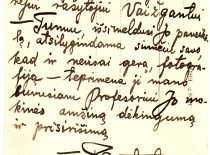 nėju rašytojui Vaižgantui
— Tumui, išsimeldusi jo paveiks-
lą, atsilygindama siunčiu savo
kad ir neisai gerą, fotogra-
fiją — teprimena ji mano
buvusiam Profesoriui jo mo-
kinės amžiną dėkingumą
ir prisirišimą